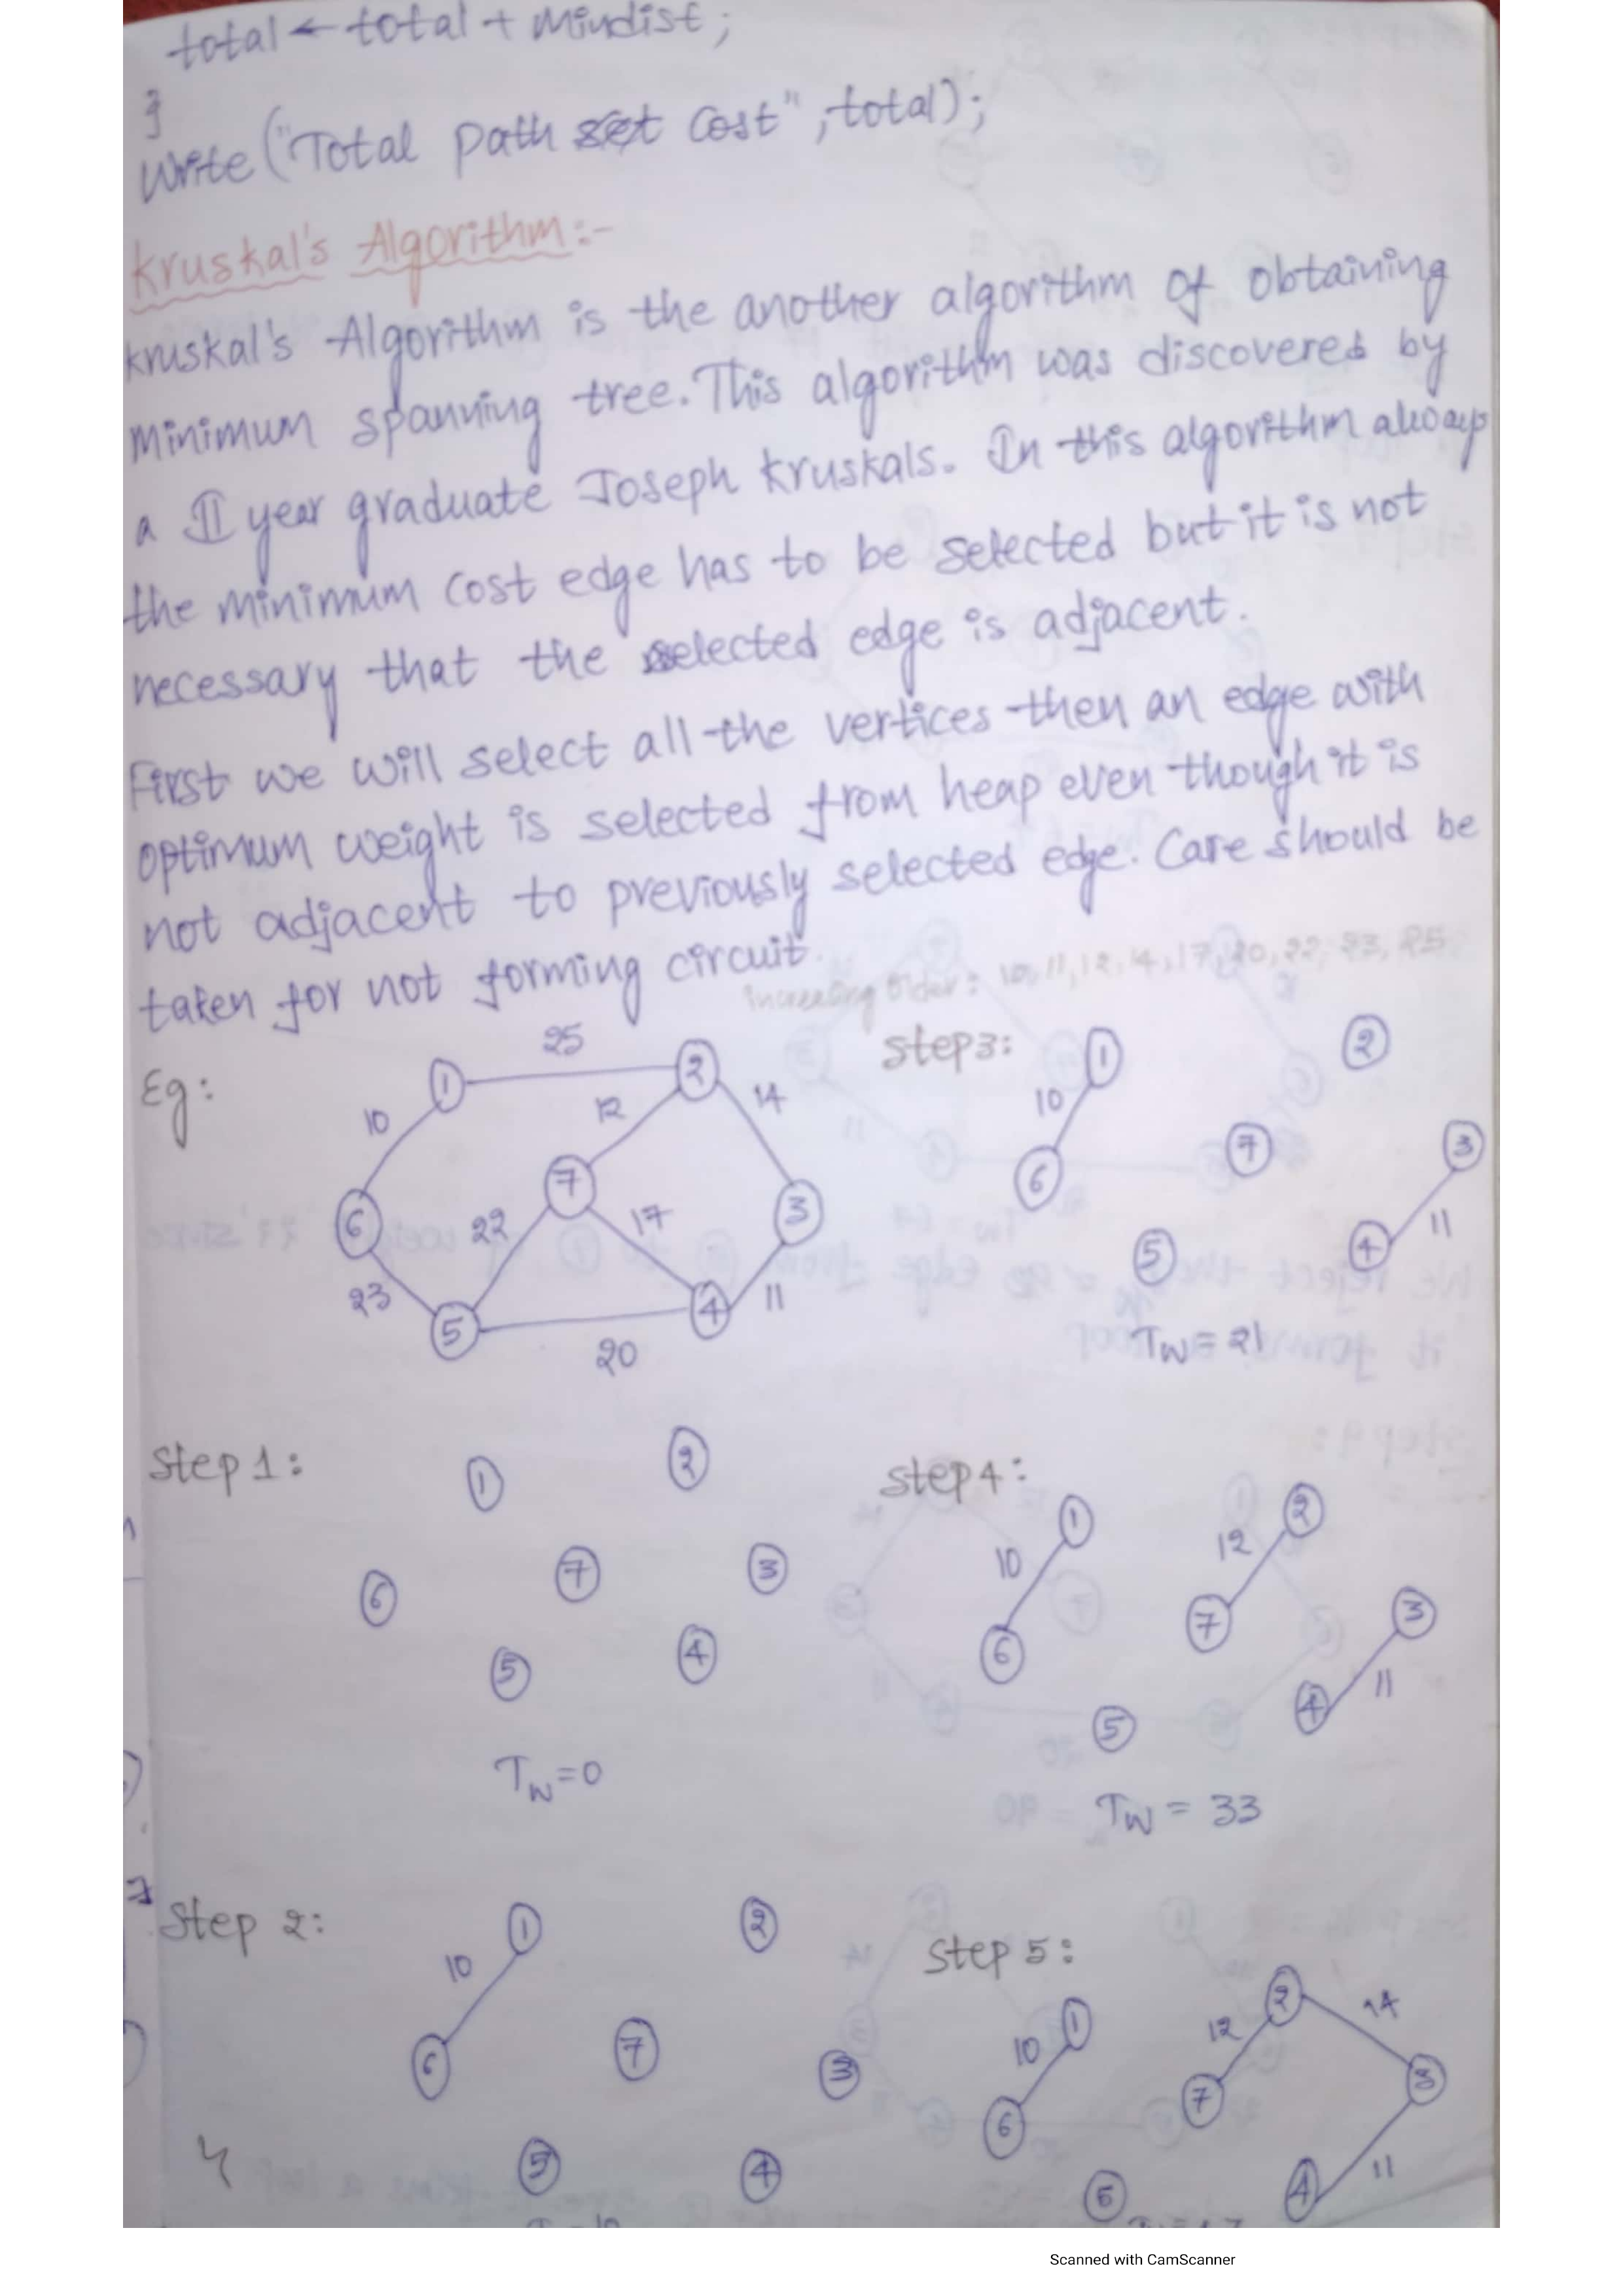 total ← total + mindist;
}
Write ("Total path cost", total);
Kruskal's Algorithm:-
Kruskal's Algorithm is the another algorithm of obtaining
minimum spanning tree. This algorithm was discovered by
a II year graduate Joseph Kruskals. In this algorithm always
the minimum cost edge has to be selected but it is not
necessary that the selected edge is adjacent.
First we will select all the vertices then an edge with
optimum weight is selected from heap even though it is
not adjacent to previously selected edge. Care should be
taken for not forming circuit.
increasing order: 10, 11, 12, 14, 17, 20, 22, 23, 25
Eg:
25
1
2
10
12
14
7
6
3
22
17
23
11
5
4
20
Step3:
1
2
10
7
3
6
11
5
4
Tw = 21
Step 1:
1
2
7
3
6
4
5
Tw = 0
Step4:
1
2
10
12
7
3
6
11
4
5
Tw = 33
Step 2:
1
2
10
7
6
3
5
4
Step 5:
2
14
1
12
10
3
7
6
11
5
4
Scanned with CamScanner